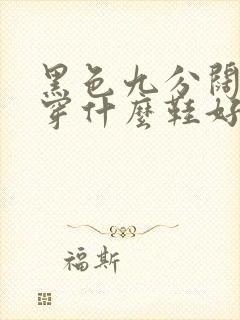 黑色九分阔
穿什麼鞋好
福斯